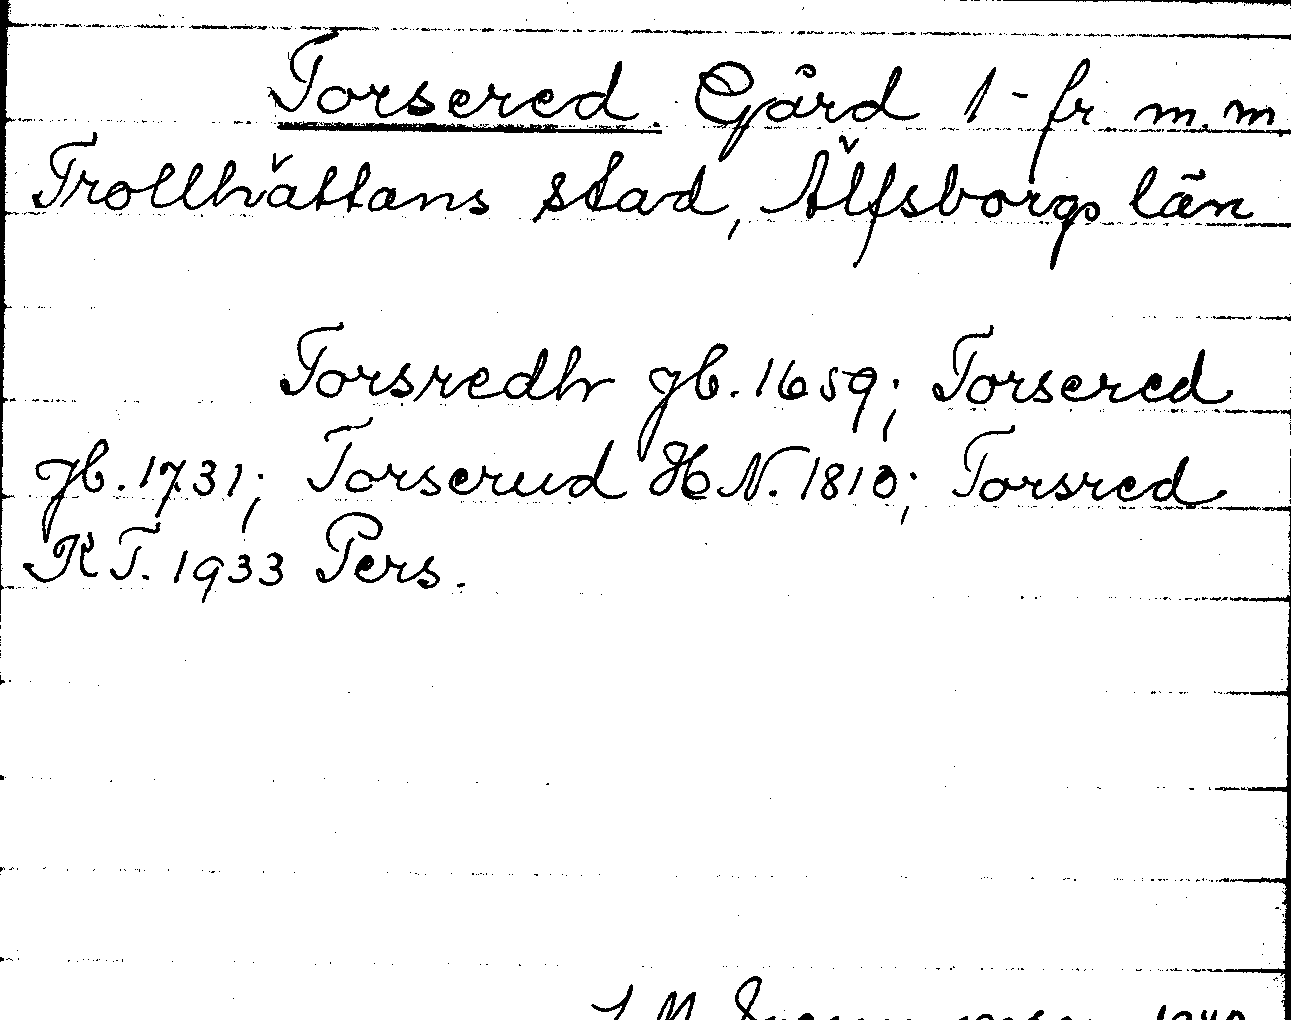 Torsered. Gård 1-fr m.m.
Trollhättans stad, Älfsborgs län
Torsredh jb. 1659; Torsered
jb. 1731; Torserud H N. 1810; Torsred
R T. 1933 Pers.